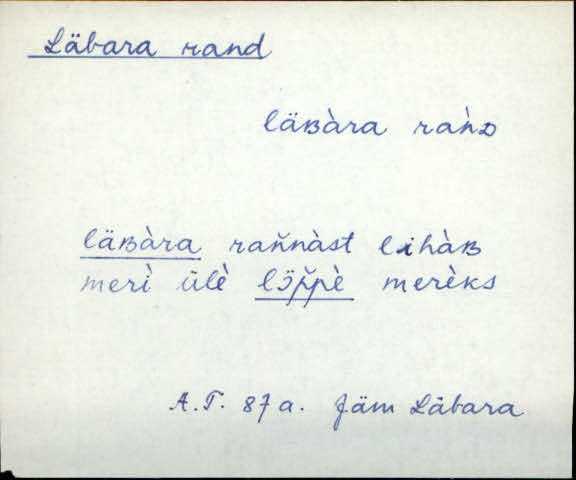 Läbara rand
läʙàra raǹᴅ
läʙàra rañ̆nàst lihàʙ
merì ülè lö̆ppè merèᴋs
A.T. 87 a. Jäm Läbara